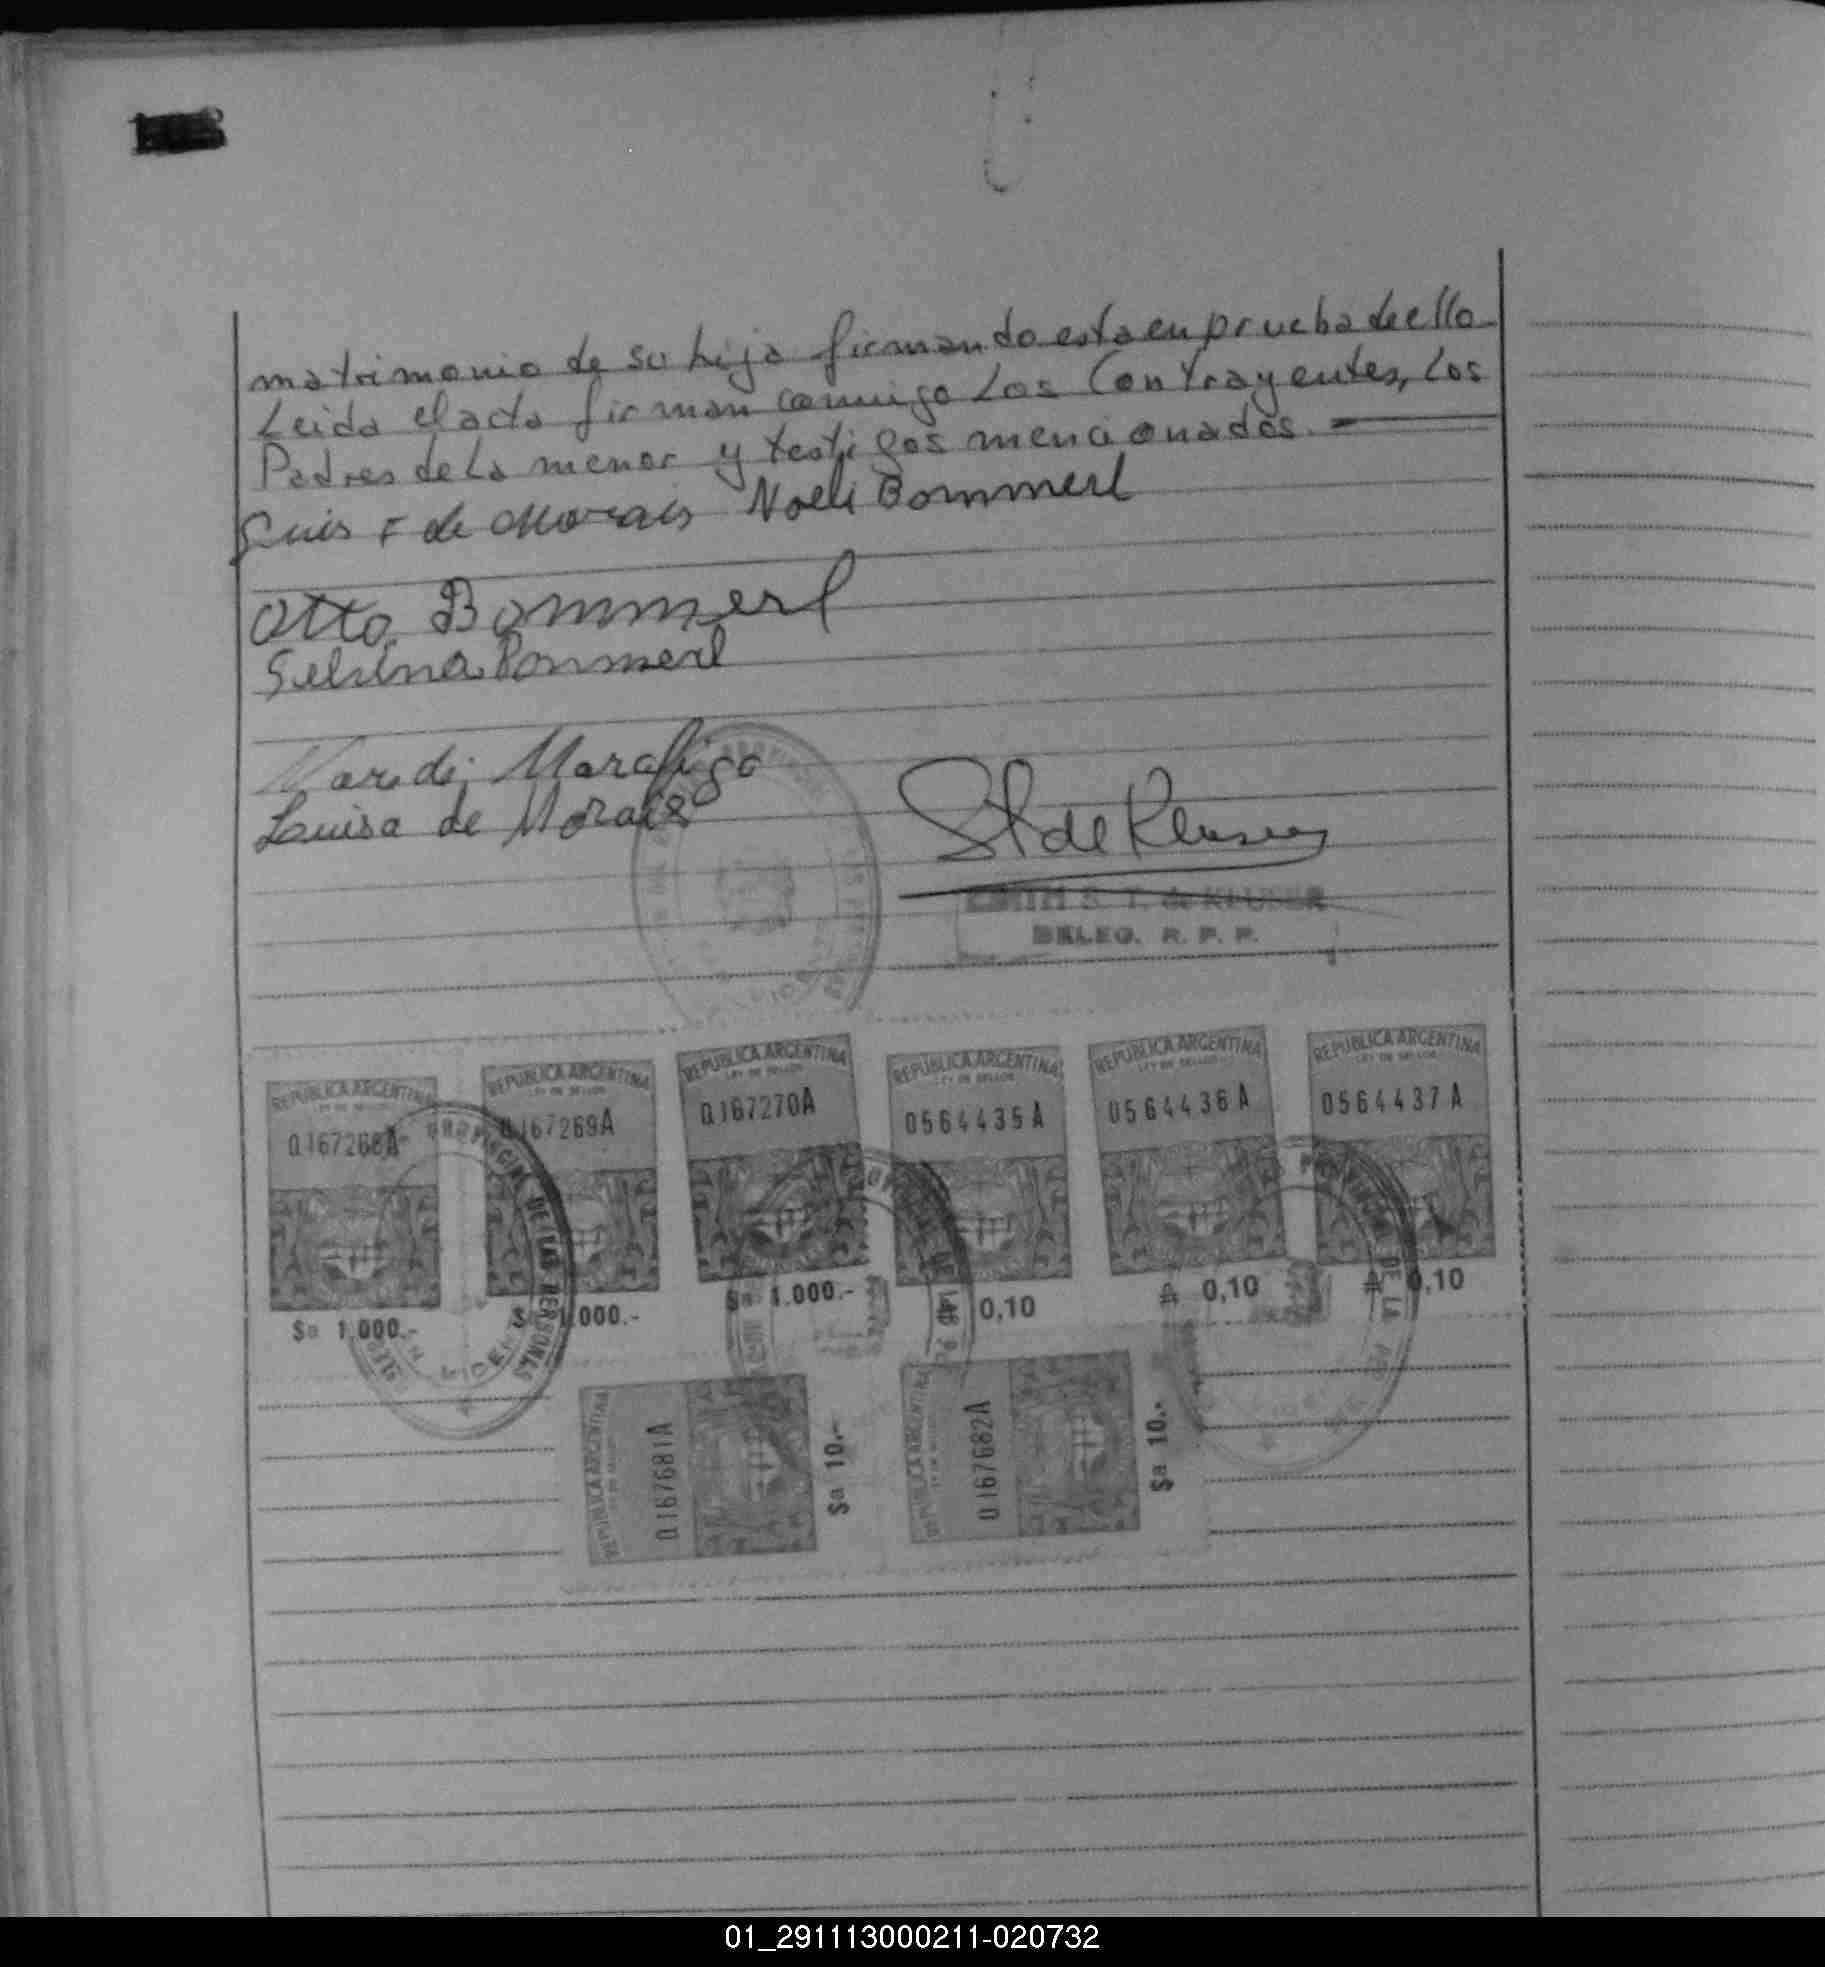 matrimonio de su hija firmando esta en prueba de ello
Leida el acta firman conmigo Los Contrayentes, Los
Padres de La menor y testigos mencionados.
Luis F de Morais Noeli Bommerl
Otto Bommerl
Bommerl
Marafigo
Luisa de Morais
EDITH S. T. de KLUSER
DELEG. R. P. P.
REPUBLICA ARGENTINA
LEY DE SELLOS
0167268A
$a 1.000.-
REPUBLICA ARGENTINA
LEY DE SELLOS
0167269A
$a 1.000.-
REPUBLICA ARGENTINA
LEY DE SELLOS
0167270A
$a 1.000.-
REPUBLICA ARGENTINA
LEY DE SELLOS
0564435A
0,10
REPUBLICA ARGENTINA
LEY DE SELLOS
0564436A
₳ 0,10
REPUBLICA ARGENTINA
LEY DE SELLOS
0564437A
₳ 0,10
PROVINCIAL DE LAS PERSONAS
REPUBLICA ARGENTINA
0167681A
$a 10.-
REPUBLICA ARGENTINA
0167682A
$a 10.-
01_291113000211-020732